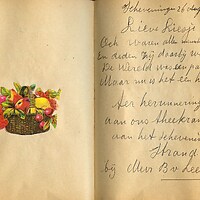 Scheveningen 26 Aug
Lieve Liesje
Och waren alle
En deden zij daarbij
De Wereld was een pa
Maar nu is het een h
Ter herinnering
aan ons theekran
aan het scheveni
Strand
bij Mevr B v Lee